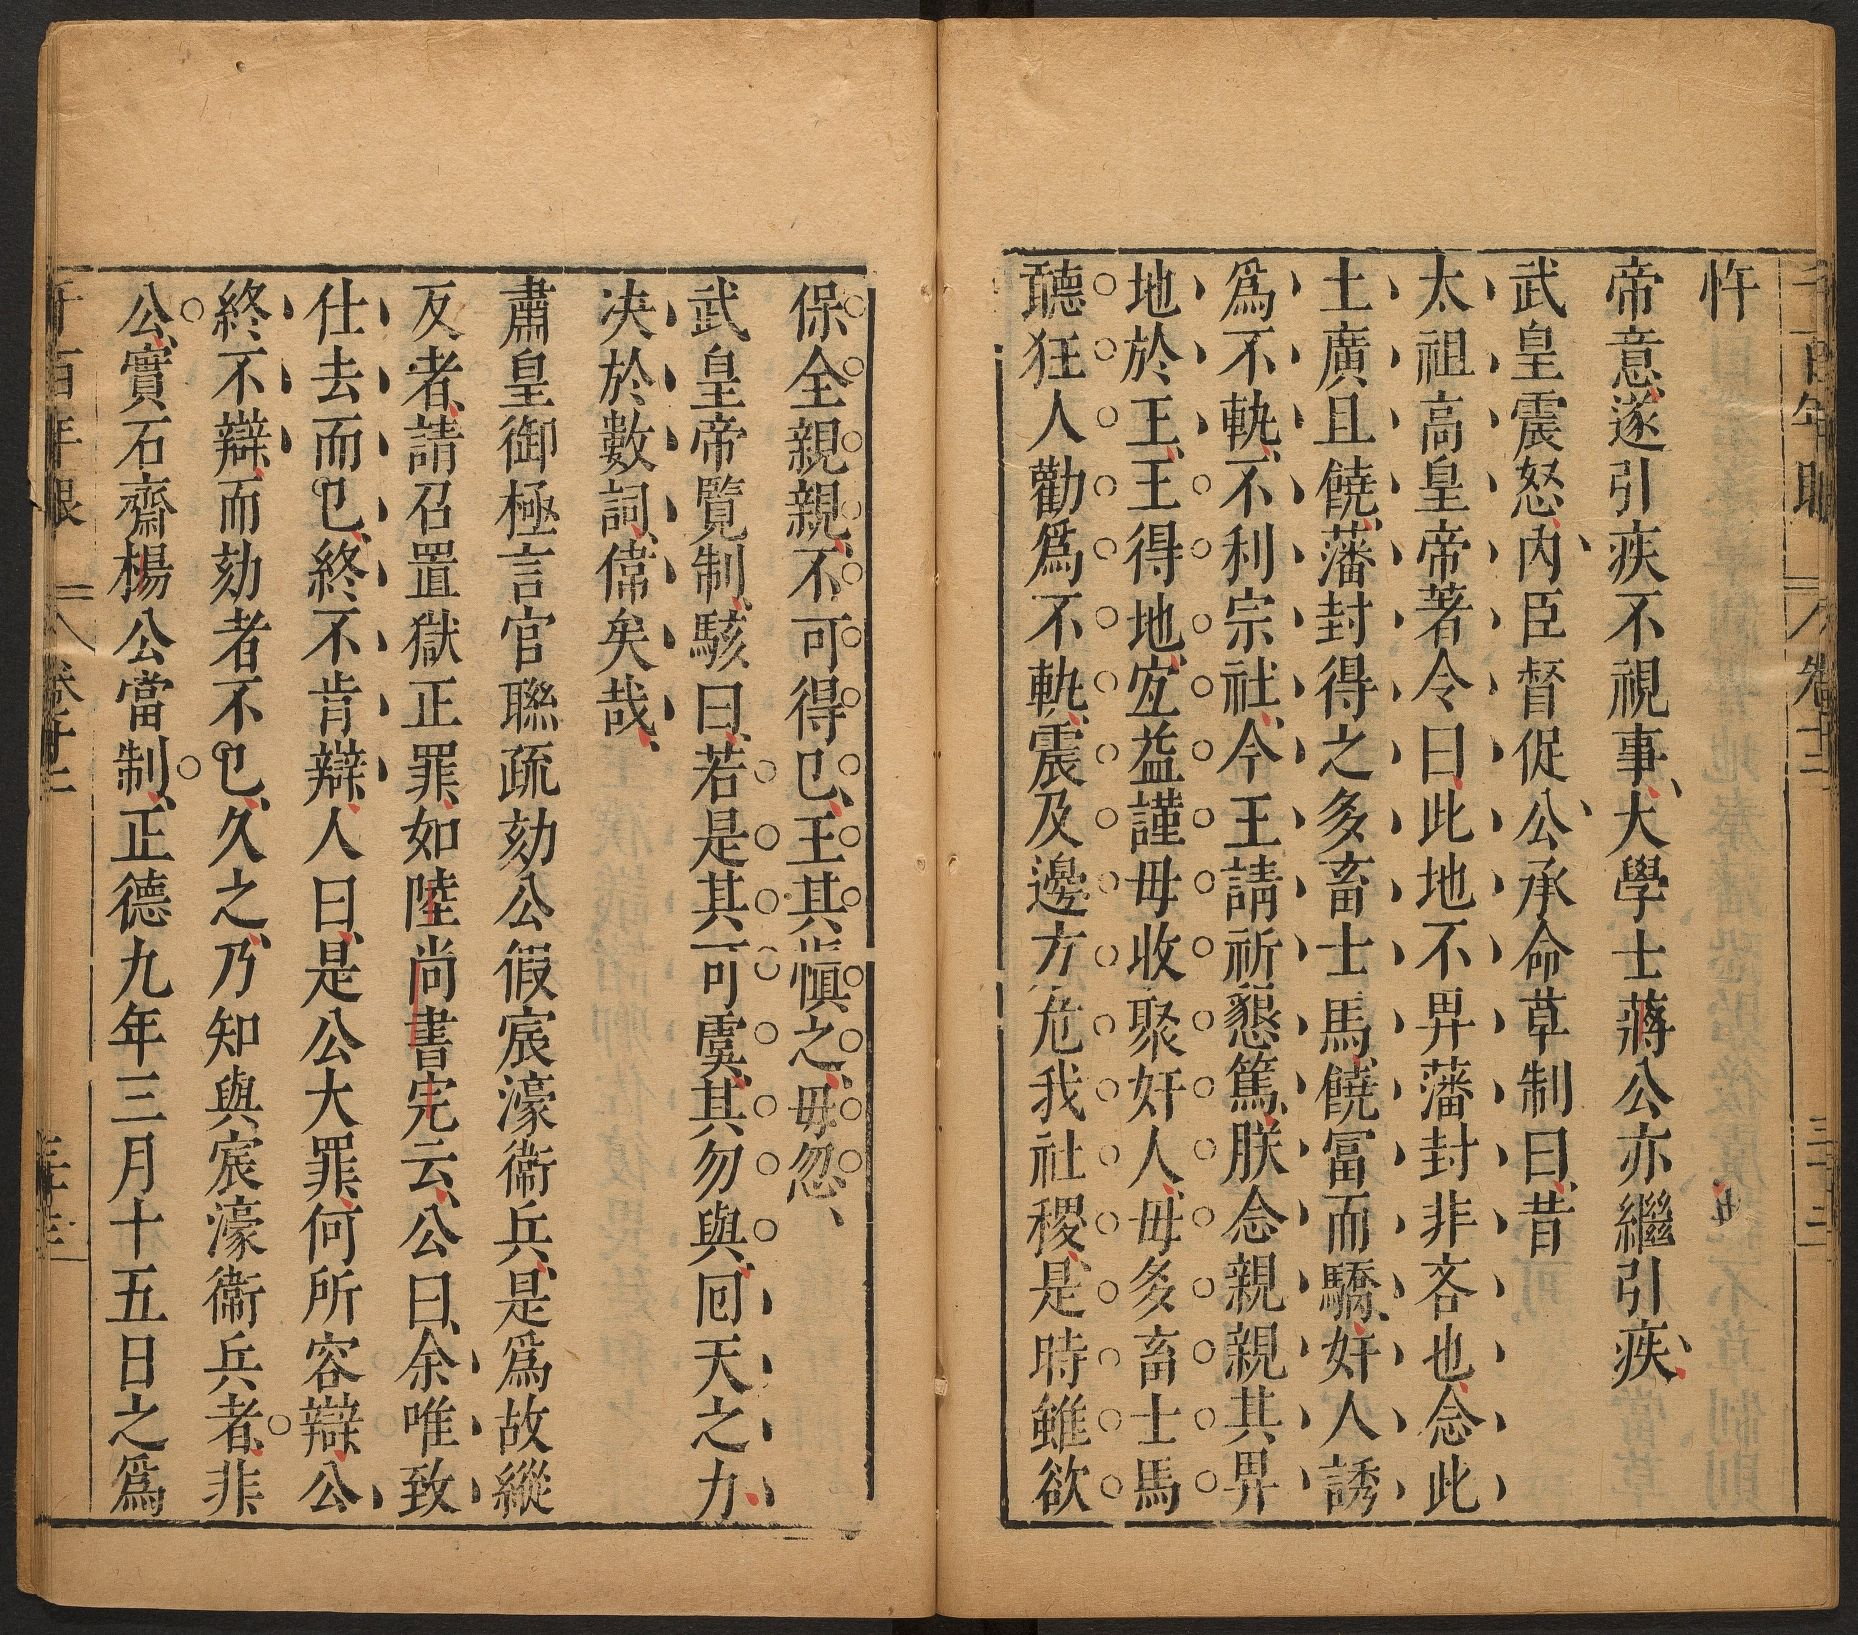 千百年眼 卷十二 三十二
忤
帝意遂引疾不視事大學士蔣公亦繼引疾
武皇震怒內臣督促公承命草制曰昔
太祖高皇帝著令曰此地不畀藩封非吝也念此
土廣且饒藩封得之多畜士馬饒富而驕奸人誘
爲不軌不利宗社今王請祈懇篤朕念親親其畀
地於王王得地宐益謹毋收聚奸人毋多畜士馬
聽狂人勸爲不軌震及邊方危我社稷是時雖欲
保全親親不可得已王其愼之毋忽
武皇帝覽制駭曰若是其可虞其勿與囘天之力
决於數詞偉矣哉
肅皇御極言官聯疏劾公假宸濠衞兵是爲故縱
反者請召置獄正罪如陸尚書完云公曰余唯致
仕去而已終不肯辯人曰是公大罪何所容辯公
終不辯而劾者不已久之乃知與宸濠衞兵者非
公實石齋楊公當制正德九年三月十五日之爲
千百年眼 卷十二 三十三